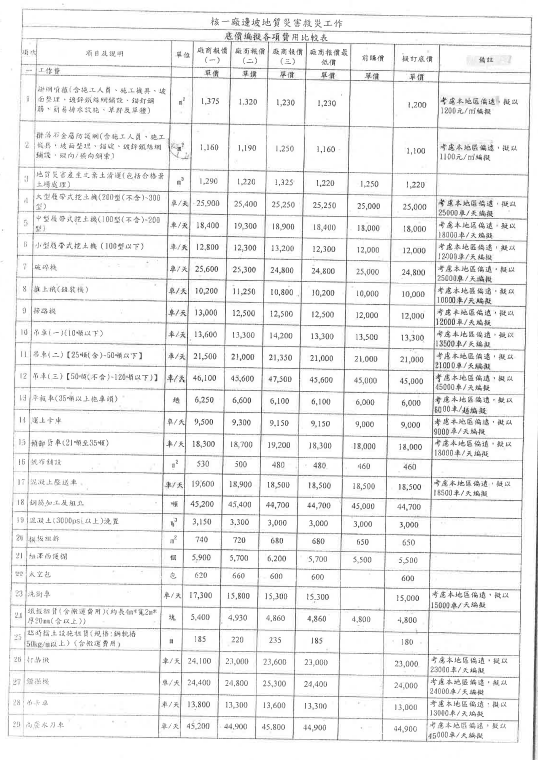 核一廠邊坡地質災害救災工作
底價編擬各項費用比較表
項次 項目及說明 單位 廠商報價(一) 廠商報價(二) 廠商報價(三) 廠商報價最低價 前購價 擬訂底價 備註
一 工作費 單價 單價 單價 單價 單價 單價
1 (含施工人員、施工機具、坡面整理、鍍鋅鐵絲網鋪設、錨釘鋼筋、簡易排水設施、草籽及草種) m² 1,375 1,320 1,230 1,230 1,200 考慮本地區偏遠，擬以1200元/㎡編擬
2 (含施工人員、施工機具、坡面整理、錨錠、鍍鋅鐵絲網鋪設、縱向/橫向鋼索) 1,160 1,190 1,250 1,160 1,100 考慮本地區偏遠，擬以1100元/㎡編擬
3 地質災害產生之棄土清運(包括合格棄土場處理) m³ 1,290 1,220 1,325 1,220 1,250 1,220
4 大型履帶式挖土機(200型(不含)-300型) 車/天 25,900 25,400 25,250 25,250 25,000 25,000 考慮本地區偏遠，擬以25000車/天編擬
5 中型履帶式挖土機(100型(不含)-200型) 車/天 18,400 19,300 18,900 18,400 18,000 18,000 考慮本地區偏遠，擬以18000車/天編擬
6 小型履帶式挖土機(100型以下) 車/天 12,800 12,300 13,200 12,300 12,000 12,000 考慮本地區偏遠，擬以12000車/天編擬
7 破碎機 車/天 25,600 25,300 24,800 24,800 25,000 24,800 考慮本地區偏遠，擬以25000車/天編擬
8 推土機(鏟裝機) 車/天 10,200 11,250 10,800 10,200 10,000 10,000 考慮本地區偏遠，擬以10000車/天編擬
9 掃路機 車/天 13,000 12,500 12,500 12,500 12,000 12,000 考慮本地區偏遠，擬以12000車/天編擬
10 吊車(一)(10噸以下) 車/天 13,600 13,300 14,200 13,300 13,500 13,300 考慮本地區偏遠，擬以13500車/天編擬
11 吊車(二)【25噸(含)-50噸以下】 車/天 21,500 21,000 21,350 21,000 21,000 21,000 考慮本地區偏遠，擬以21000車/天編擬
12 吊車(三)【50噸(不含)-120噸以下)】 車/天 46,100 45,600 47,500 45,600 45,000 45,000 考慮本地區偏遠，擬以45000車/天編擬
13 平板車(35噸以上拖車頭) 趟 6,250 6,600 6,100 6,100 6,000 6,000 考慮本地區偏遠，擬以6000車/趟編擬
14 運土卡車 車/天 9,500 9,300 9,150 9,150 9,000 9,000 考慮本地區偏遠，擬以9000車/天編擬
15 傾卸貨車(21噸至35噸) 車/天 18,300 18,700 19,200 18,300 18,000 18,000 考慮本地區偏遠，擬以18000車/天編擬
16 帆布鋪設 m² 530 500 480 480 460 460
17 混凝土壓送車 車/天 19,600 18,900 18,500 18,500 18,500 18,500 考慮本地區偏遠，擬以18500車/天編擬
18 鋼筋加工及組立 噸 45,200 45,400 44,700 44,700 45,000 44,700
19 混凝土(3000psi以上)澆置 m³ 3,150 3,300 3,000 3,000 3,000 3,000
20 模板組拆 m² 740 720 680 680 650 650
21 紐澤西護欄 個 5,900 5,700 6,200 5,700 5,500 5,500
22 太空包 包 620 660 600 600 600
23 洗街車 車/天 17,300 15,800 15,300 15,300 15,000 考慮本地區偏遠，擬以15000車/天編擬
24 鐵板租賃(含搬運費用)(約長6m*寬2m*厚20mm(含以上)) 塊 5,400 4,930 4,860 4,860 4,800 4,800
25 臨時擋土設施租賃(規格:鋼軌樁50kg/m以上)(含搬運費用) m 185 220 235 185 180
26 打 機 車/天 24,100 23,000 23,600 23,000 23,000 考慮本地區偏遠，擬以23000車/天編擬
27 機 車/天 24,400 24,800 25,300 24,400 24,000 考慮本地區偏遠，擬以24000車/天編擬
28 吊卡車 車/天 13,800 13,300 13,600 13,300 13,000 考慮本地區偏遠，擬以13000車/天編擬
29 高壓水刀車 車/天 45,200 44,900 45,800 44,900 44,900 考慮本地區偏遠，擬以45000車/天編擬